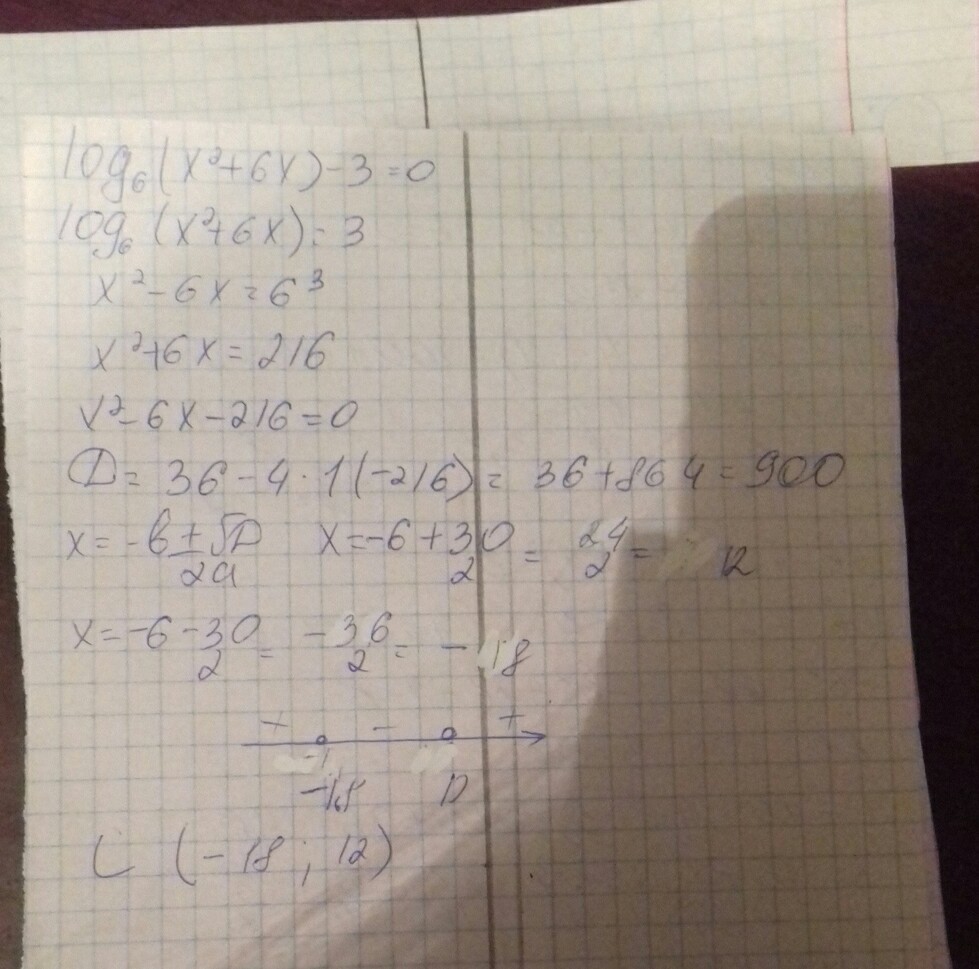 log₆(x²+6x)-3=0
log₆(x²+6x)=3
x²-6x=6³
x²+6x=216
x²-6x-216=0
D=36-4·1(-216)=36+864=900
x=-b±√D/2a x=-6+30/2=24/2=12
x=-6-30/2=-36/2=-18
+ - +
-18 12
(-18; 12)